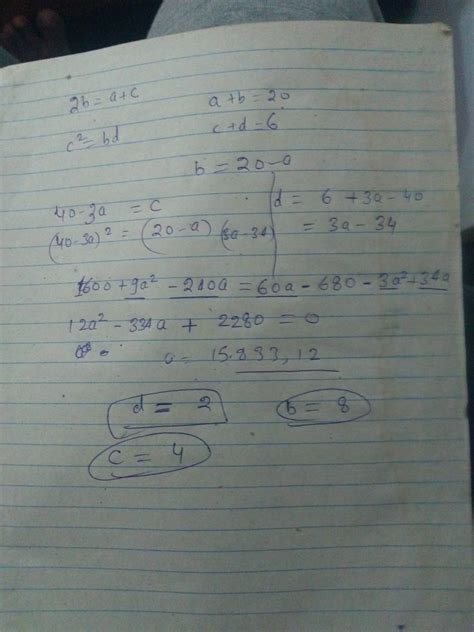 2b = a+c  a+b = 20
c² = bd  c+d = 6
b = 20-a
40-3a = c  d = 6 + 3a - 40
(40-3a)² = (20-a) (3a-34)  = 3a - 34
1600 + 9a² - 240a = 60a - 680 - 3a² + 34a
12a² - 334a + 2280 = 0
a = 15.833, 12
d = 2  b = 8
c = 4